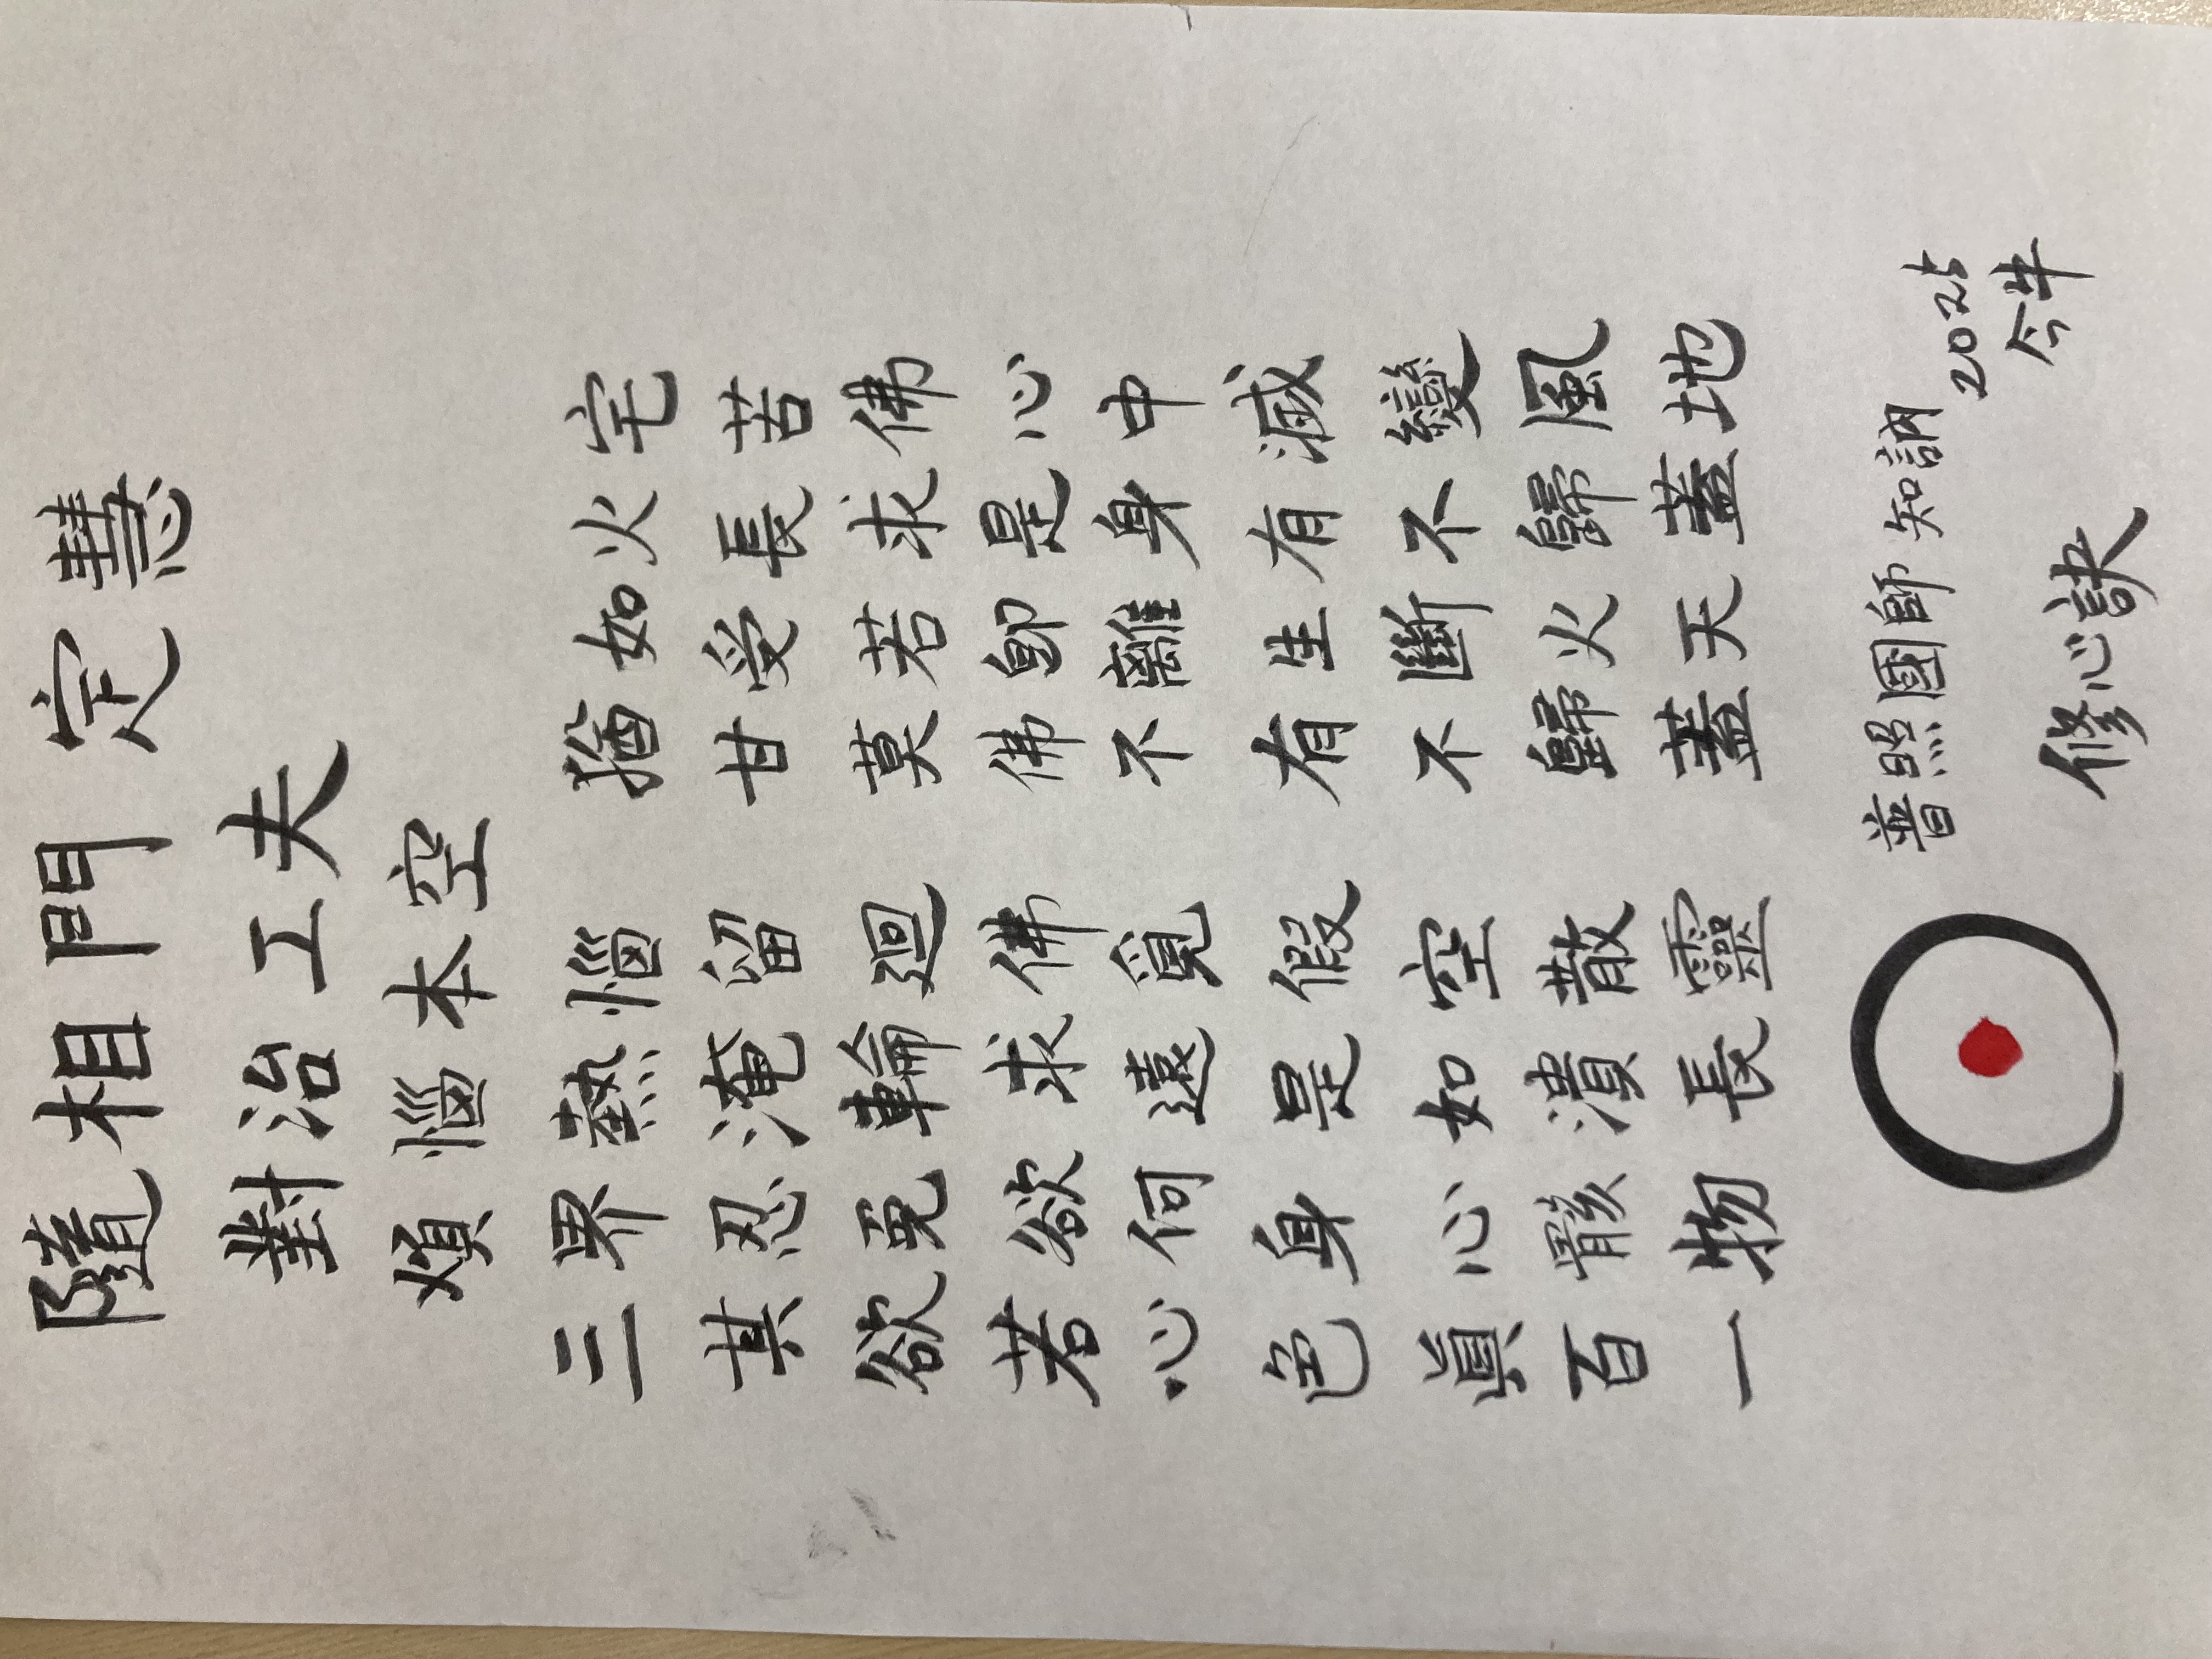 隨相門定慧
對治工夫
煩惱本空
三界熱惱 猶如火宅
其忍淹留 甘受長苦
欲免輪廻 莫若求佛
若欲求佛 佛卽是心
心何遠覓 不離身中
色身是假 有生有滅
眞心如空 不斷不變
百骸潰散 歸火歸風
一物長靈 蓋天蓋地
普照國師 知訥
修心訣
2025
今牛